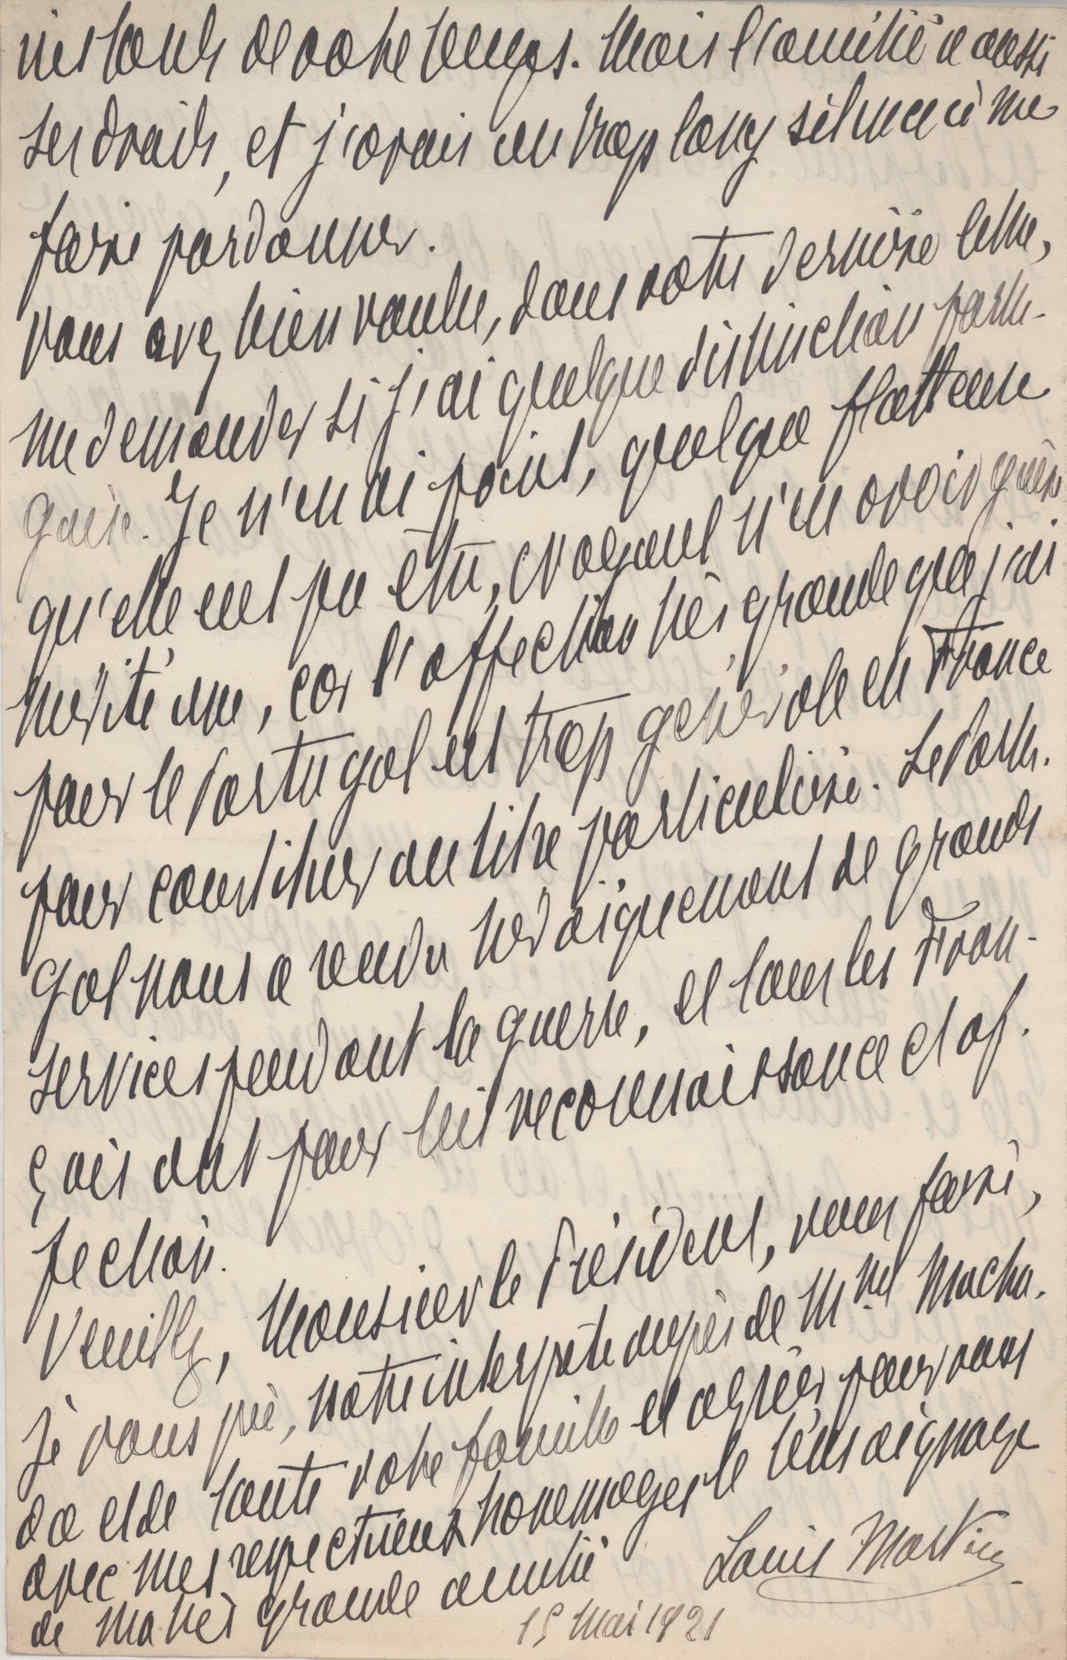 instants de votre temps. Mais l'amitié a aussi
ses droits, et j'avais un trop long silence à me
faire pardonner.
Vous avez bien voulu, dans votre dernière lettre,
me demander si j'ai quelque distinction portu-
gaise. Je n'en ai point, quelque flatteuse
qu'elle eut pu être, croyant n'en avoir guère
mérité une, car l'affection très grande que j'ai
pour le Portugal est trop générale en France
pour constituer un titre particulier. Le Portu-
gal nous a rendu héroïquement de grands
services pendant la guerre, et tous les Fran-
çais ont pour lui reconnaissance et af-
fection.
Veuillez, Monsieur le Président, vous faire,
je vous prie, notre interprète auprès de Mme Macha-
do et de toute votre famille et agréer pour vous
avec mes respectueux hommages le témoignage
de ma très grande amitié
Louis Martin
15 Mai 1921